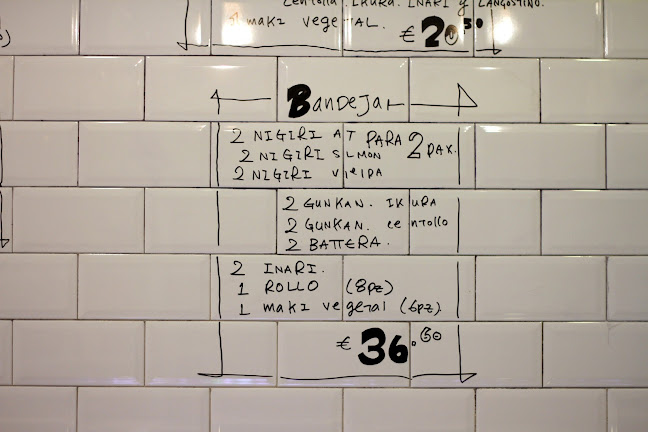 centolla. IKURA. INARI y LANGOSTINO.
1 maki vegetal.
€ 20.50
Bandejas
2 NIGIRI AT PARA 2 PAX.
2 NIGIRI SLMON
2 NIGIRI vieiRA
2 GUNKAN. IKURA
2 GUNKAN. centollo
2 BATTERA.
2 INARI.
1 ROLLO (8pz)
1 maki vegetal (6pz).
€ 36.60